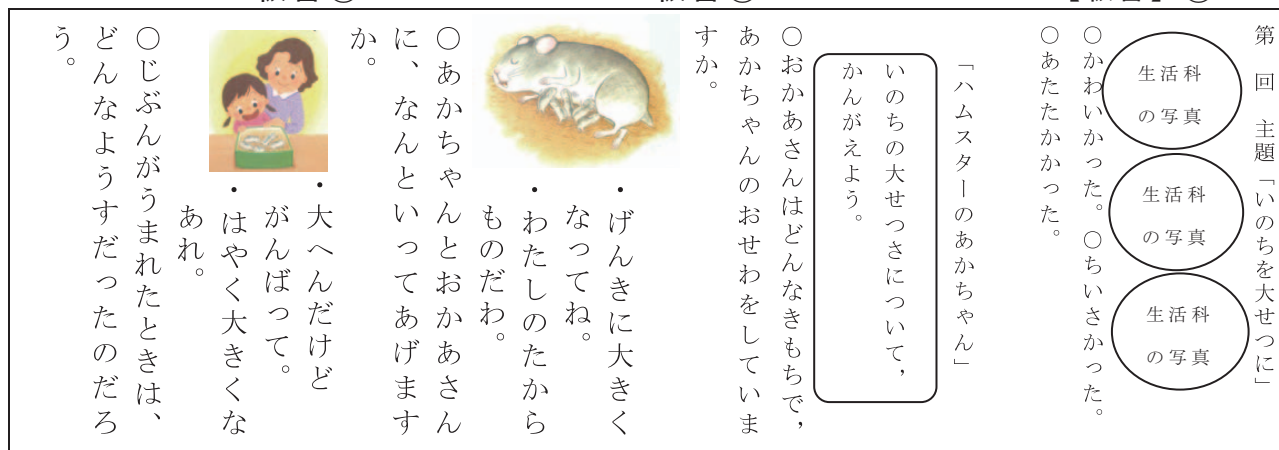 第　回　主題「いのちを大せつに」
生活科
の写真
生活科
の写真
生活科
の写真
○かわいかった。○ちいさかった。
○あたたかかった。
「ハムスターのあかちゃん」
いのちの大せつさについて，
かんがえよう。
○おかあさんはどんなきもちで，
あかちゃんのおせわをしていま
すか。
・げんきに大きく
なってね。
・わたしのたから
ものだわ。
○あかちゃんとおかあさん
に、なんといってあげます
か。
・大へんだけど
がんばって。
・はやく大きくな
あれ。
○じぶんがうまれたときは、
どんなようすだったのだろ
う。